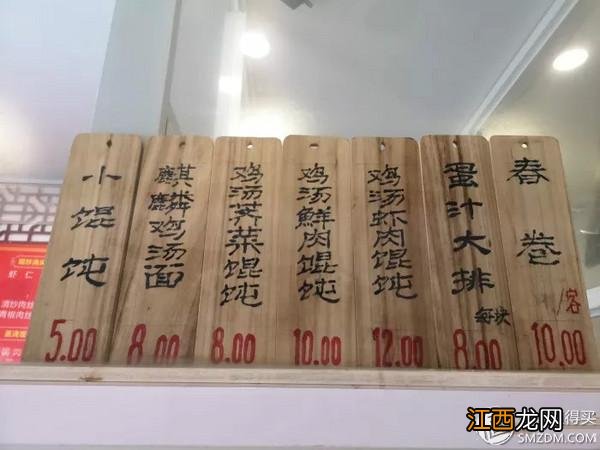 小馄饨
5.00
麒麟鸡汤面
8.00
鸡汤荠菜馄饨
8.00
鸡汤鮮肉馄饨
10.00
鸡汤虾肉馄饨
12.00
蜜汁大排
每块
8.00
春卷
/客
10.00
虾仁
清炒肉丝
青椒肉丝
江西龙网
得买
SMZDM.COM